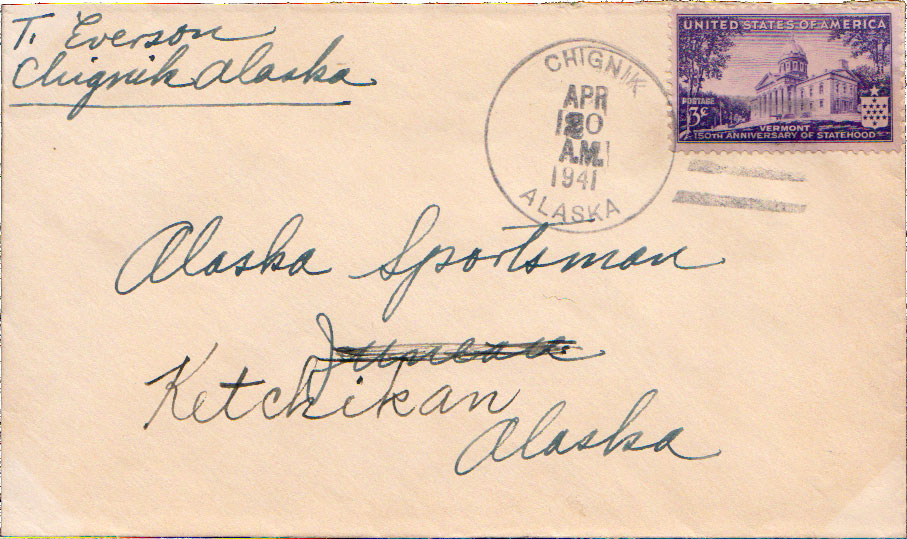 T. Everson
Chignik Alaska
CHIGNIK
APR
A.M.
1941
ALASKA
UNITED STATES OF AMERICA
POSTAGE
3¢
VERMONT
150TH ANNIVERSARY OF STATEHOOD
Alaska Sportsman
Ketchikan
Alaska